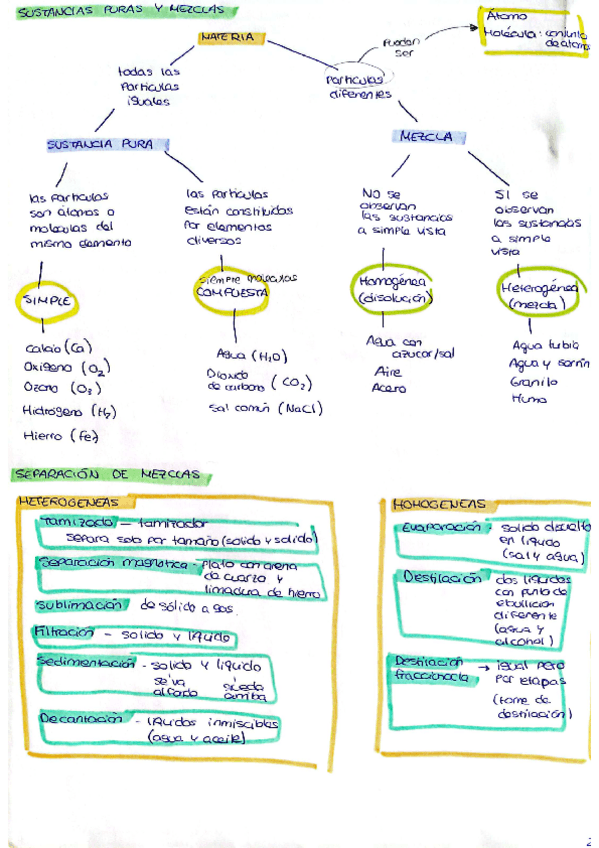 SUSTANCIAS PURAS Y MEZCLAS
MATERIA
Pueden
ser
Átomo
Molécula: conjunto
de átomos
todas las
Particulas
iguales
Particulas
diferentes
SUSTANCIA PURA
MEZCLA
las particulas
son átomos o
moleculas del
mismo elemento
las particulas
están constituidas
Por elementos
diversos
NO se
observan
las sustancias
a simple vista
SI se
observan
las sustancias
a simple
vista
SIMPLE
siempre moleculas
COMPUESTA
Homogénea
(disolución)
Heterogénea
(mezcla)
Calcio (Ca)
Oxigeno (O₂)
Ozono (O₃)
Hidrógeno (H₂)
Hierro (Fe)
Agua (H₂O)
Dioxido
de carbono (CO₂)
Sal común (NaCl)
Agua con
azucar/sal
Aire
Acero
Agua turbia
Agua y serrin
Granito
Humo
SEPARACIÓN DE MEZCLAS
HETEROGENEAS
Tamizado – tamizador
Separa solo por tamaño (solido y solido)
Separación magnetica - Plato con arena
de cuarzo y
limadura de hierro
Sublimación de sólido a gas
Filtración – solido y liquido
Sedimentación - solido y liquido
se va
queda
arriba
Decantación - liquidos inmiscibles
(agua y aceite)
HOMOGENEAS
Evaporación: solido disuelto
en liquido
(sal y agua)
Destilación dos liquidos
con punto de
ebullicion
diferente
(agua y
alcohol)
Destilación
fraccionada → igual pero
Por etapas
(torre de
destilación)
2